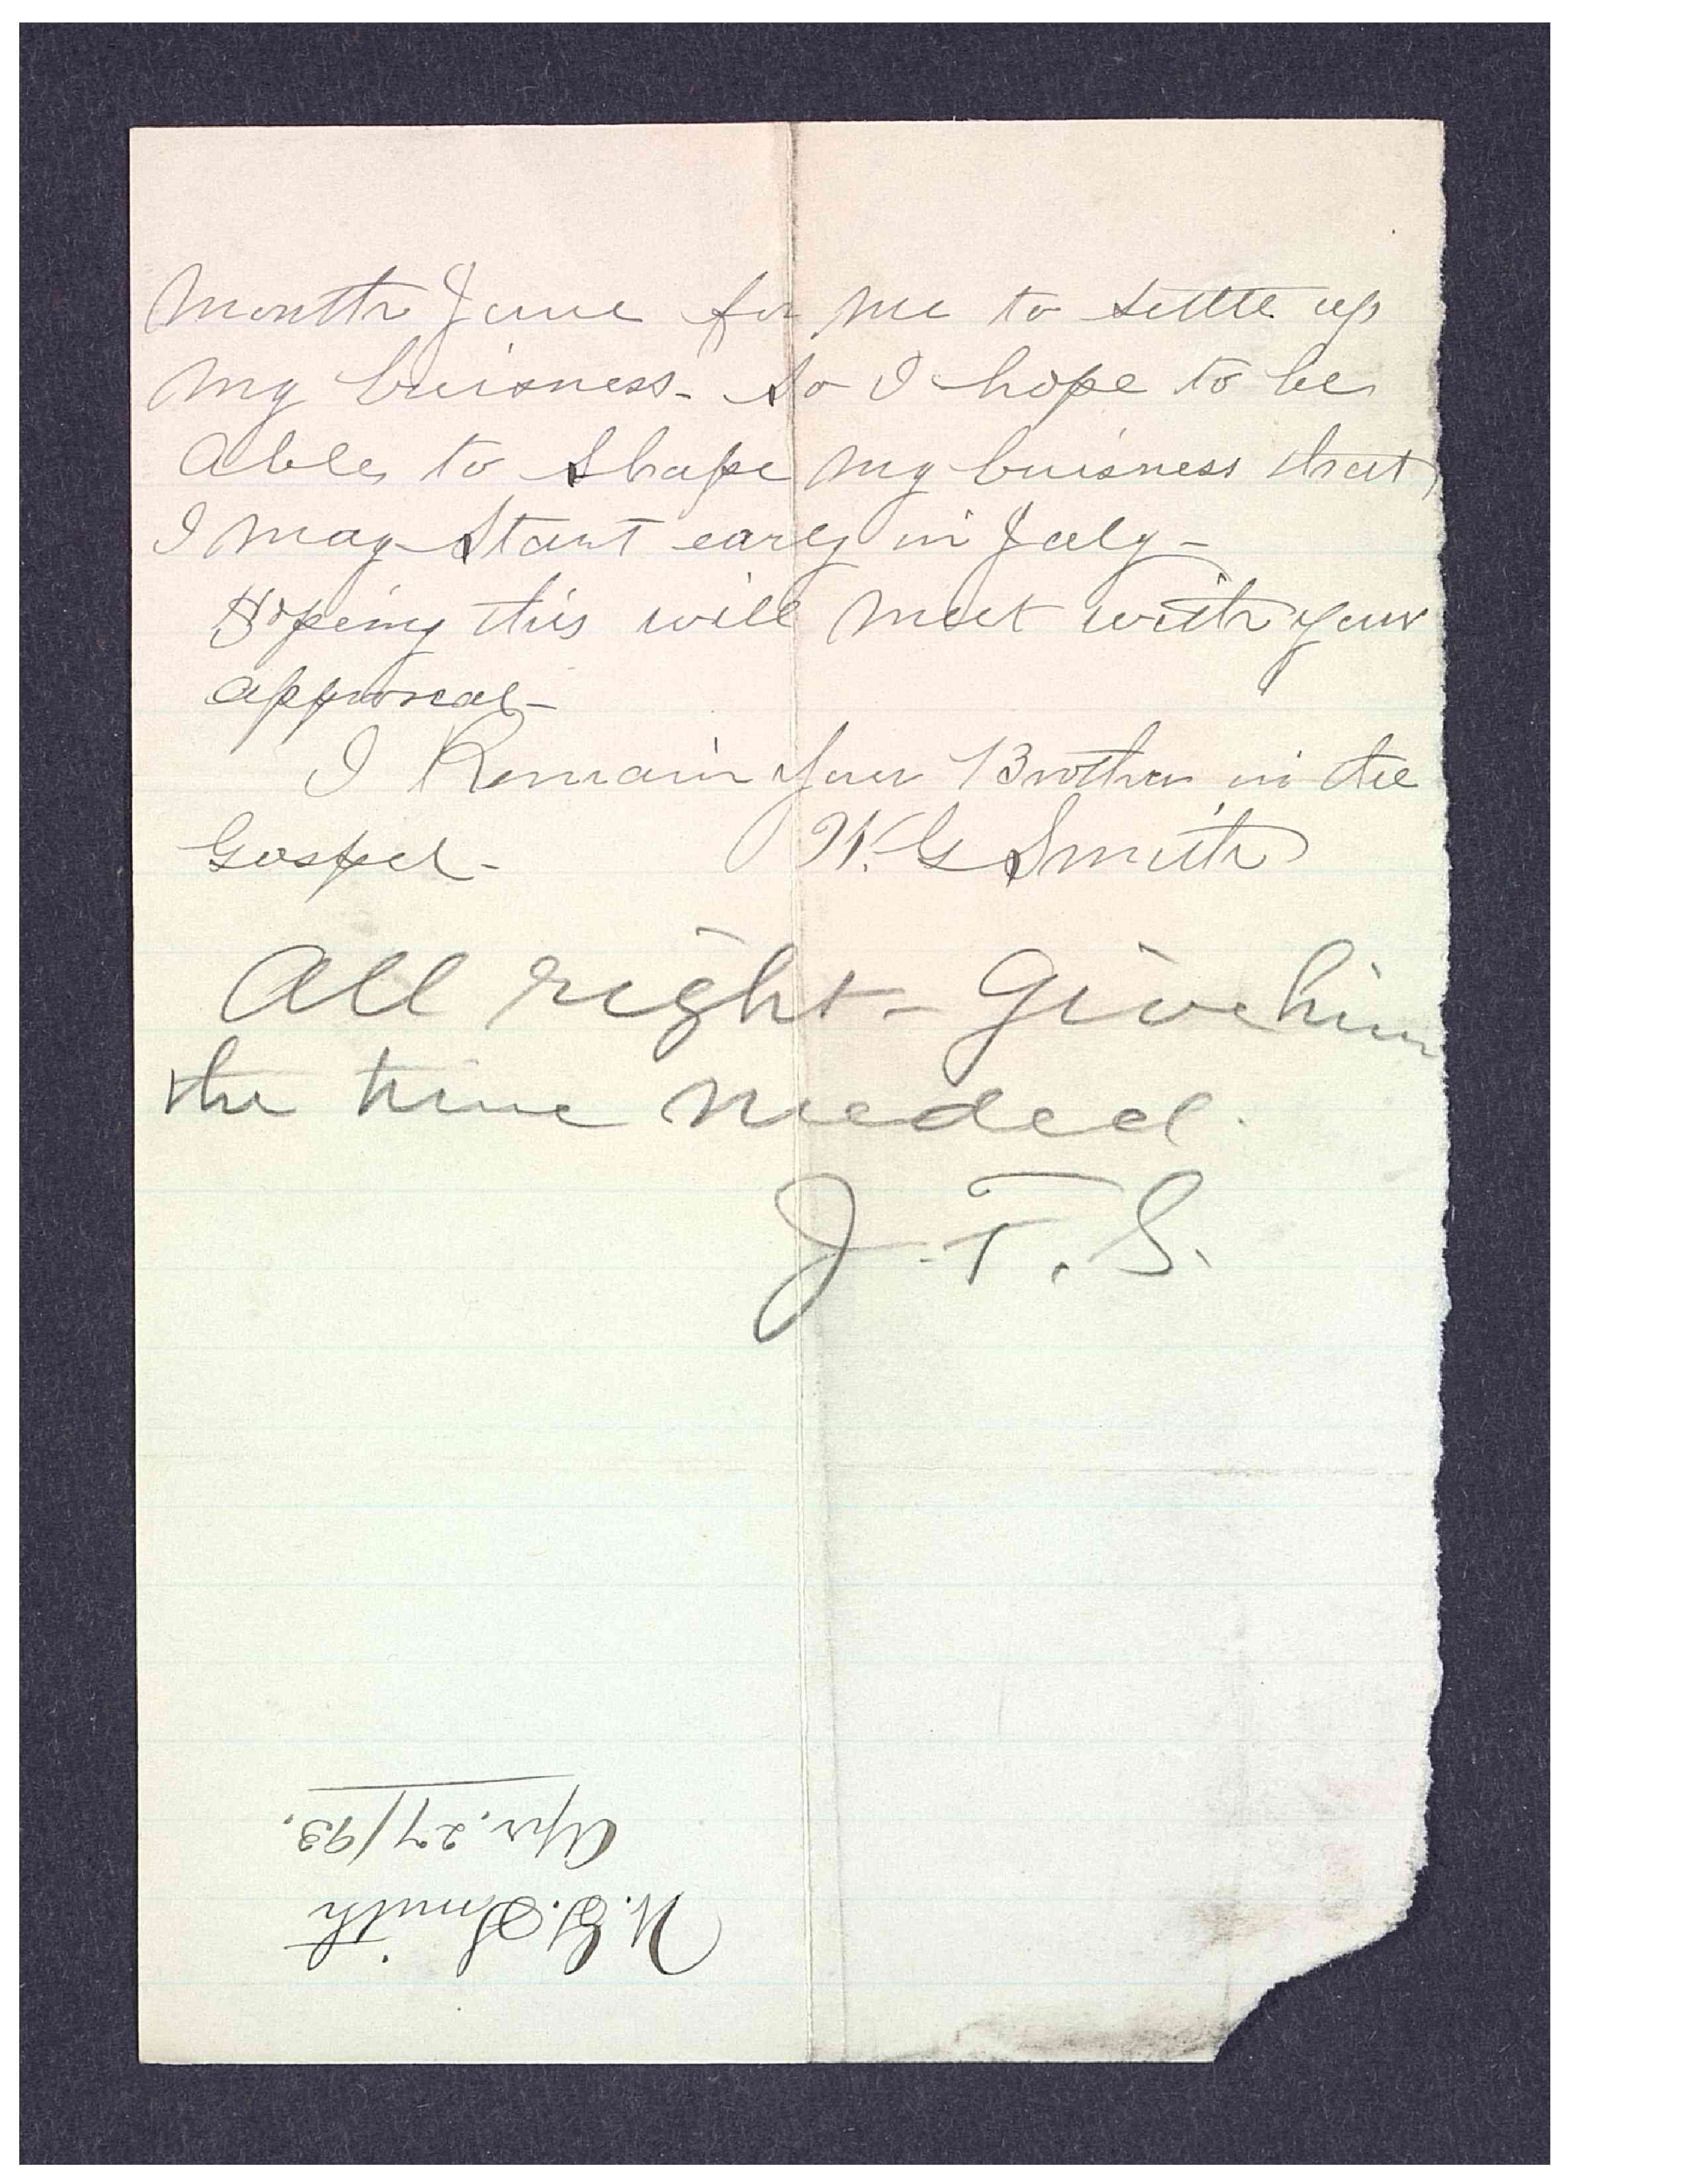 month June for me to settle up
my buisness - So I hope to be
able to Shape my buisness that
I may Start early in July -
Hopeing this will meet with your
approval -
I Remain your Brother in the
Gospel - W. G Smith
All right - Give him
the time needed.
J. T. S.
W. G. Smith
Apr. 27/93.